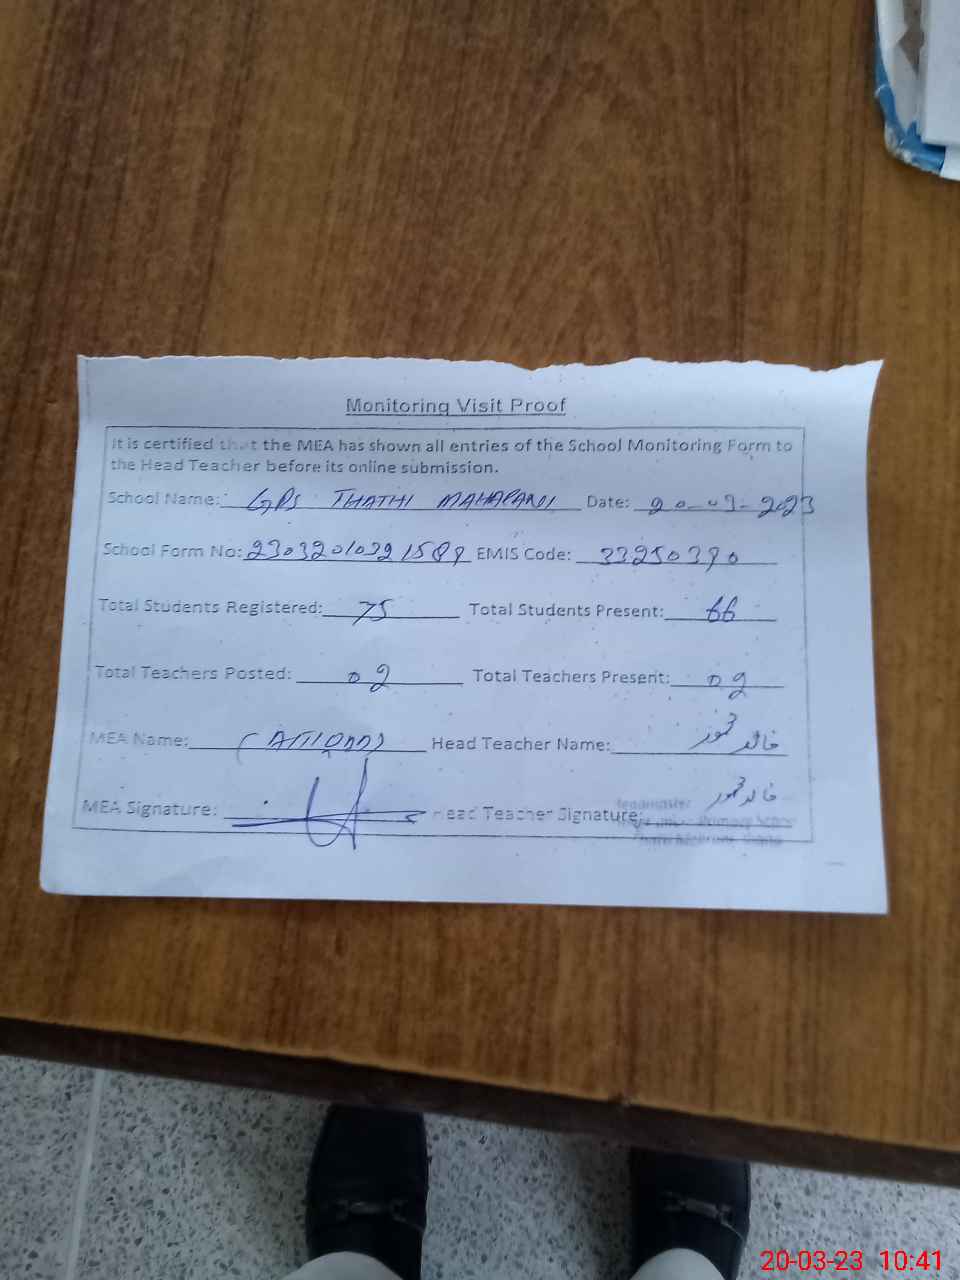 Monitoring Visit Proof
It is certified that the MEA has shown all entries of the School Monitoring Form to
the Head Teacher before its online submission.
School Name: GPS THATHI Date: 20-03-2023
School Form No: EMIS Code: 33250390
Total Students Registered: 75 Total Students Present: 66
Total Teachers Posted: 02 Total Teachers Present: 02
MEA Name: Head Teacher Name: خالد محمود
MEA Signature: Head Teacher Signature: خالد محمود
Headmaster
Primary School
20-03-23 10:41